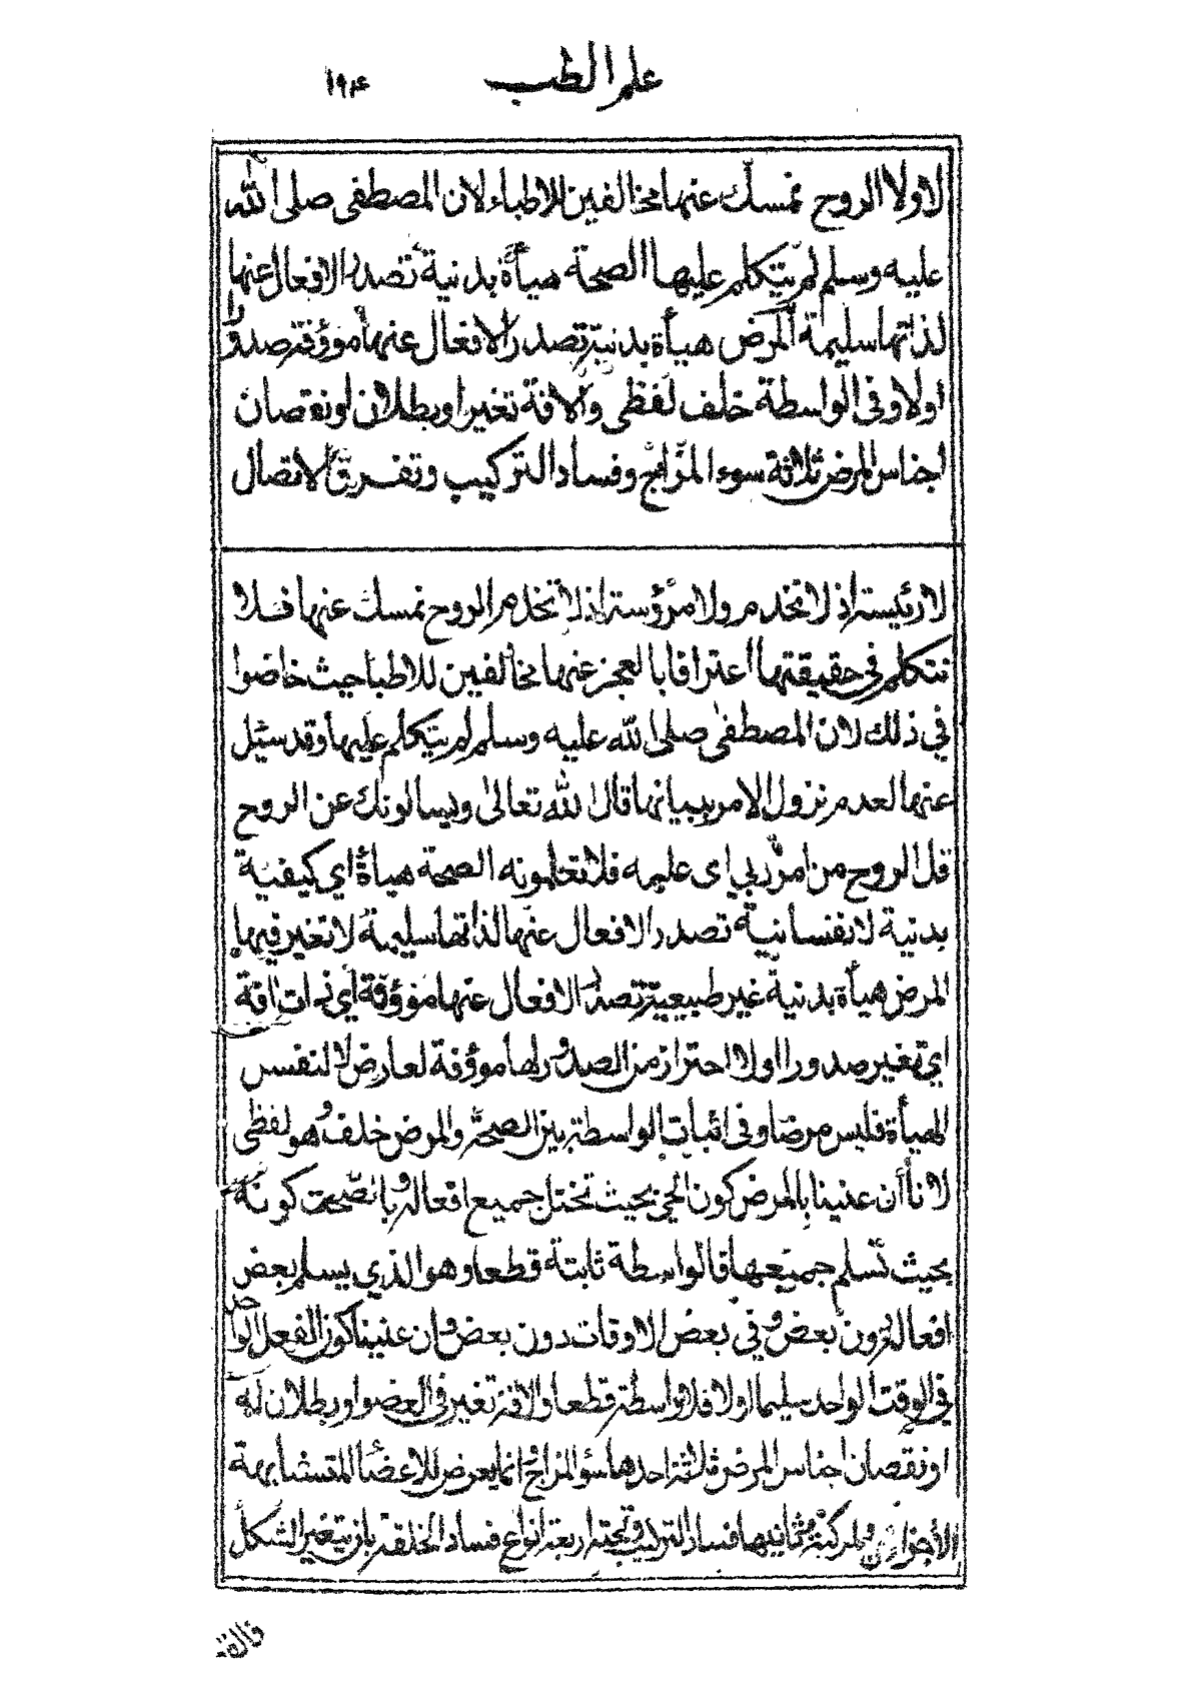 علم الطب ١٩٤
لا ولا الروح نمسك عنها مخالفين للاطباء لان المصطفى صلى الله
عليه وسلم لم يتكلم عليها الصحة هيأة بدنية تصدر الافعال عنها
لذاتها سليمة المرض هيأة بدنية تصدر الافعال عنها مؤوفة صدورا
اولا وفي الواسطة خلف لفظي والافة تغير او بطلان او نقصان
اجناس المرض ثلاثة سوء المزاج وفساد التركيب وتفرق الاتصال
لا رئيسة اذ لا تخدم ولا مرؤسة اذ لا تخدم الروح نمسك عنها فلا
نتكلم في حقيقتها اعترافا بالعجز عنها مخالفين للاطبا حيث خاضوا
في ذلك لان المصطفى صلى الله عليه وسلم لم يتكلم عليها وقد سئل
عنها لعدم نزول الامر ببيانها قال الله تعالى ويسالونك عن الروح
قل الروح من امر ربي اى علمه فلا تعلمونه الصحة هيأة اي كيفية
بدنية لا نفسانية تصدر الافعال عنها لذاتها سليمة لا تغير فيها
المرض هيأة بدنية غير طبيعية تصدر الافعال عنها مؤوفة اي ذات افة
اي تغير صدورا اولا احتراز من الصدور لها مؤوفة لعارض لا لنفس
الهيأة فليس مرضا وفي اثبات الواسطة بين الصحة والمرض خلف وهو لفظي
لانا ان عنينا بالمرض كون الحي بحيث تختل جميع افعاله وبالصحة كونه
بحيث تسلم جميعها فالواسطة ثابتة قطعا وهو الذي يسلم بعض
افعاله دون بعض وفي بعض الاوقات دون بعض وان عنينا كون الفعل الواحد
في الوقت الواحد سليما او لا فلا واسطة قطعا والافة تغير في العضو او بطلان له
او نقصان اجناس المرض ثلاثة احدها سؤ المزاج انما يعرض للاعضا المتشابهة
الاجزا والمركبة ثانيها فساد التركيب وتحته اربعة انواع فساد الخلقة بان يتغير الشكل